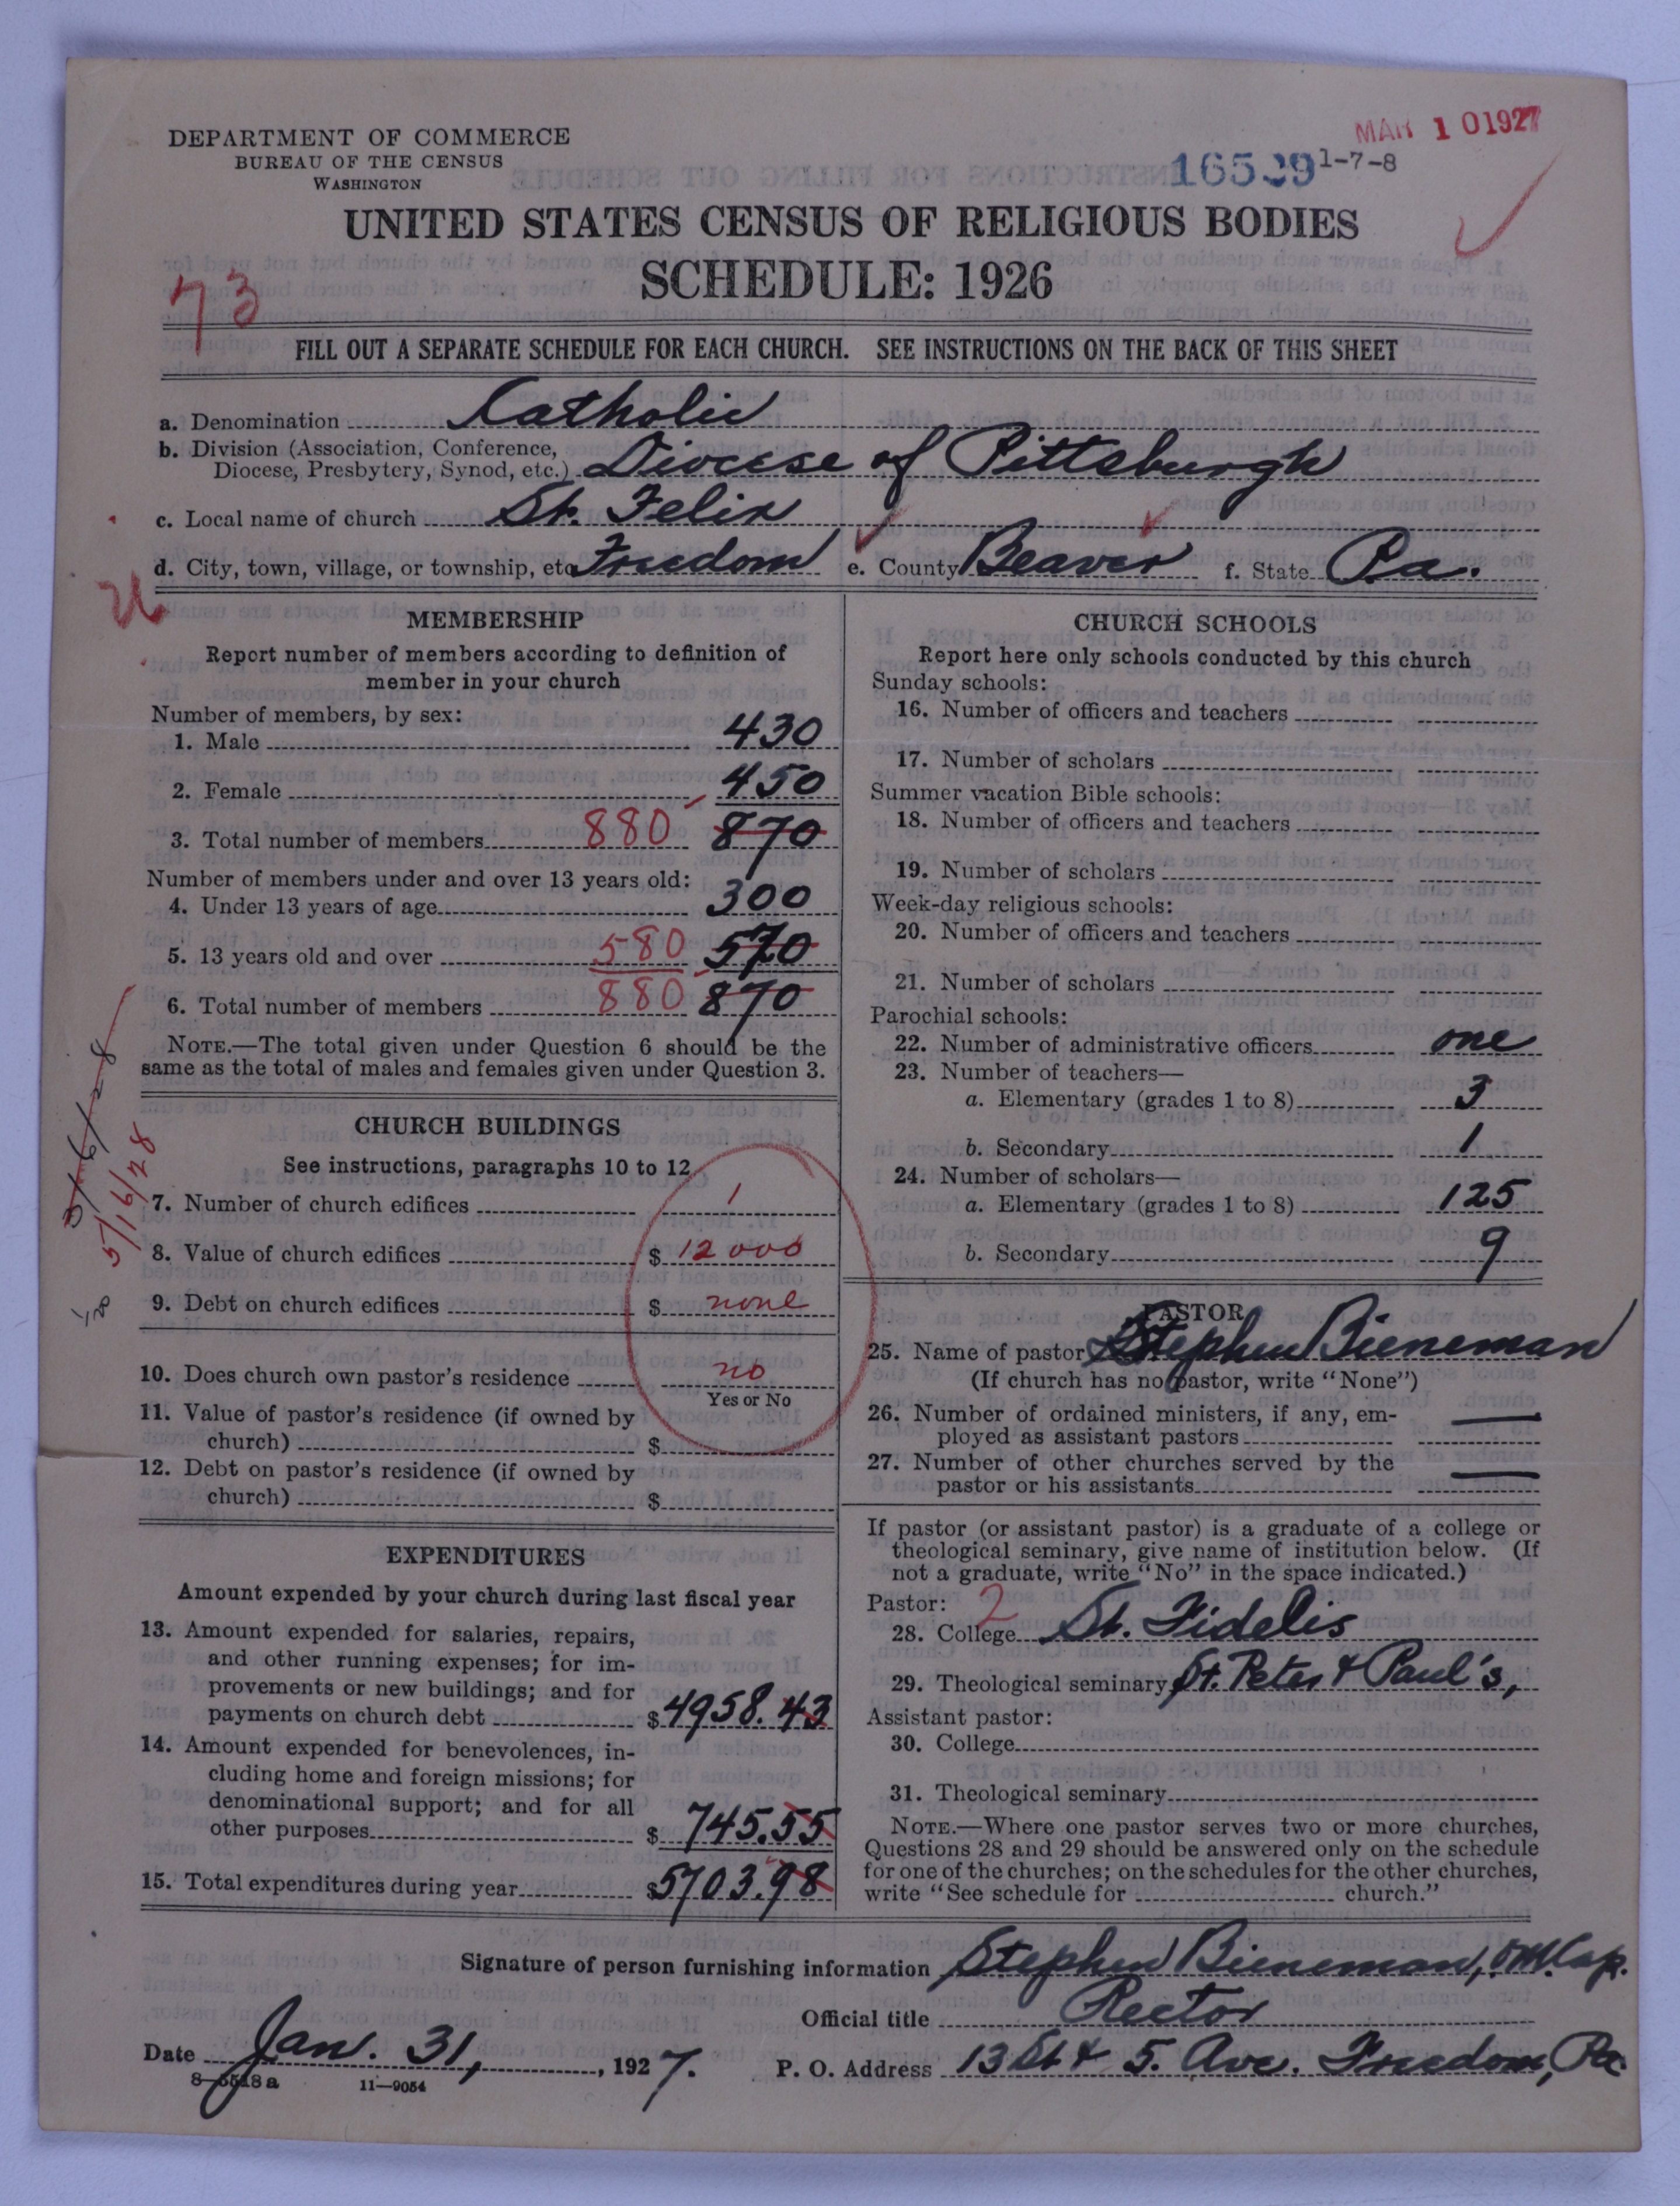 DEPARTMENT OF COMMERCE
BUREAU OF THE CENSUS
WASHINGTON
MAR 10 1927
16529 1-7-8
UNITED STATES CENSUS OF RELIGIOUS BODIES
SCHEDULE: 1926
73
FILL OUT A SEPARATE SCHEDULE FOR EACH CHURCH. SEE INSTRUCTIONS ON THE BACK OF THIS SHEET
a. Denomination Catholic
b. Division (Association, Conference,
Diocese, Presbytery, Synod, etc.) Diocese of Pittsburgh
c. Local name of church St. Felix
d. City, town, village, or township, etc. Freedom e. County Beaver f. State Pa.
MEMBERSHIP
Report number of members according to definition of
member in your church
Number of members, by sex:
1. Male 430
2. Female 450
3. Total number of members 880 870
Number of members under and over 13 years old:
4. Under 13 years of age 300
5. 13 years old and over 580 570
6. Total number of members 880 870
NOTE.—The total given under Question 6 should be the
same as the total of males and females given under Question 3.
3/6/28
5/16/28
CHURCH BUILDINGS
See instructions, paragraphs 10 to 12
7. Number of church edifices 1
8. Value of church edifices $ 12000
9. Debt on church edifices $ none
10. Does church own pastor's residence no
Yes or No
11. Value of pastor's residence (if owned by
church) $
12. Debt on pastor's residence (if owned by
church) $
EXPENDITURES
Amount expended by your church during last fiscal year
13. Amount expended for salaries, repairs,
and other running expenses; for im-
provements or new buildings; and for
payments on church debt $ 4958.43
14. Amount expended for benevolences, in-
cluding home and foreign missions; for
denominational support; and for all
other purposes $ 745.55
15. Total expenditures during year $ 5703.98
CHURCH SCHOOLS
Report here only schools conducted by this church
Sunday schools:
16. Number of officers and teachers
17. Number of scholars
Summer vacation Bible schools:
18. Number of officers and teachers
19. Number of scholars
Week-day religious schools:
20. Number of officers and teachers
21. Number of scholars
Parochial schools:
22. Number of administrative officers one
23. Number of teachers—
a. Elementary (grades 1 to 8) 3
b. Secondary 1
24. Number of scholars—
a. Elementary (grades 1 to 8) 125
b. Secondary 9
PASTOR
25. Name of pastor Stephen Bieneman
(If church has no pastor, write "None")
26. Number of ordained ministers, if any, em-
ployed as assistant pastors —
27. Number of other churches served by the
pastor or his assistants —
If pastor (or assistant pastor) is a graduate of a college or
theological seminary, give name of institution below. (If
not a graduate, write "No" in the space indicated.)
Pastor: 2
28. College St. Fidelis
29. Theological seminary St. Peter & Paul's,
Assistant pastor:
30. College
31. Theological seminary
NOTE.—Where one pastor serves two or more churches,
Questions 28 and 29 should be answered only on the schedule
for one of the churches; on the schedules for the other churches,
write "See schedule for church."
Signature of person furnishing information Stephen Bieneman, O.M.Cap.
Official title Rector
Date Jan. 31, 1927. P. O. Address 13 St & 5. Ave. Freedom, Pa.
8—5518a 11—9054